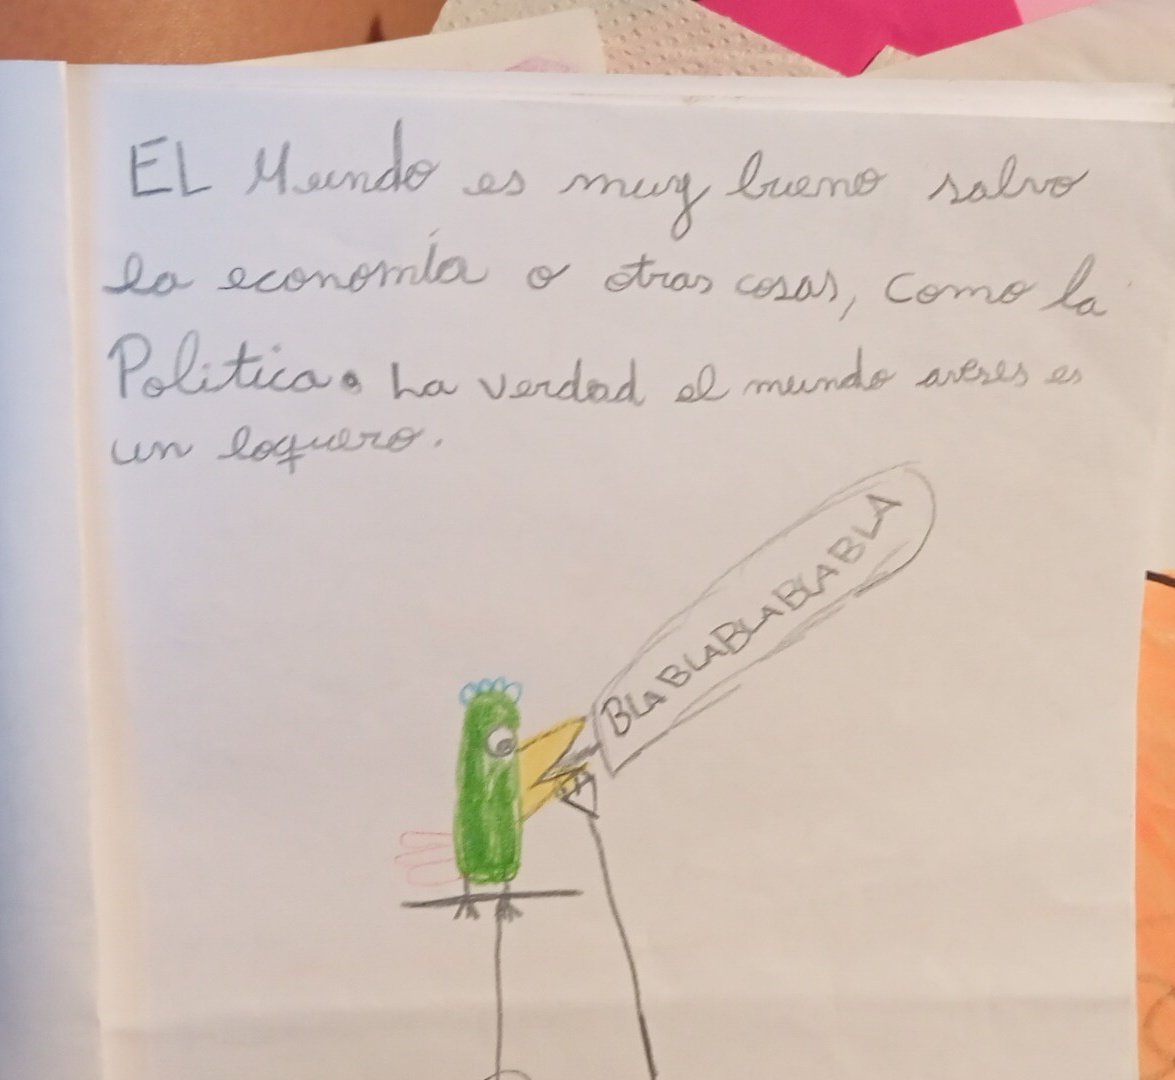 EL Mundo es muy bueno salvo
la economía o otras cosas, como la
Politica. La verdad el mundo averes es
un loquero.
BLA BLA BLA BLA BLA